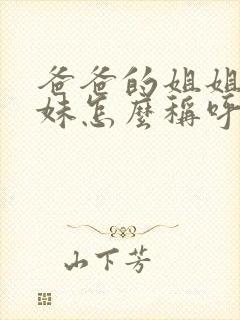 爸爸的姐姐
妹怎麼稱呼
山下芳